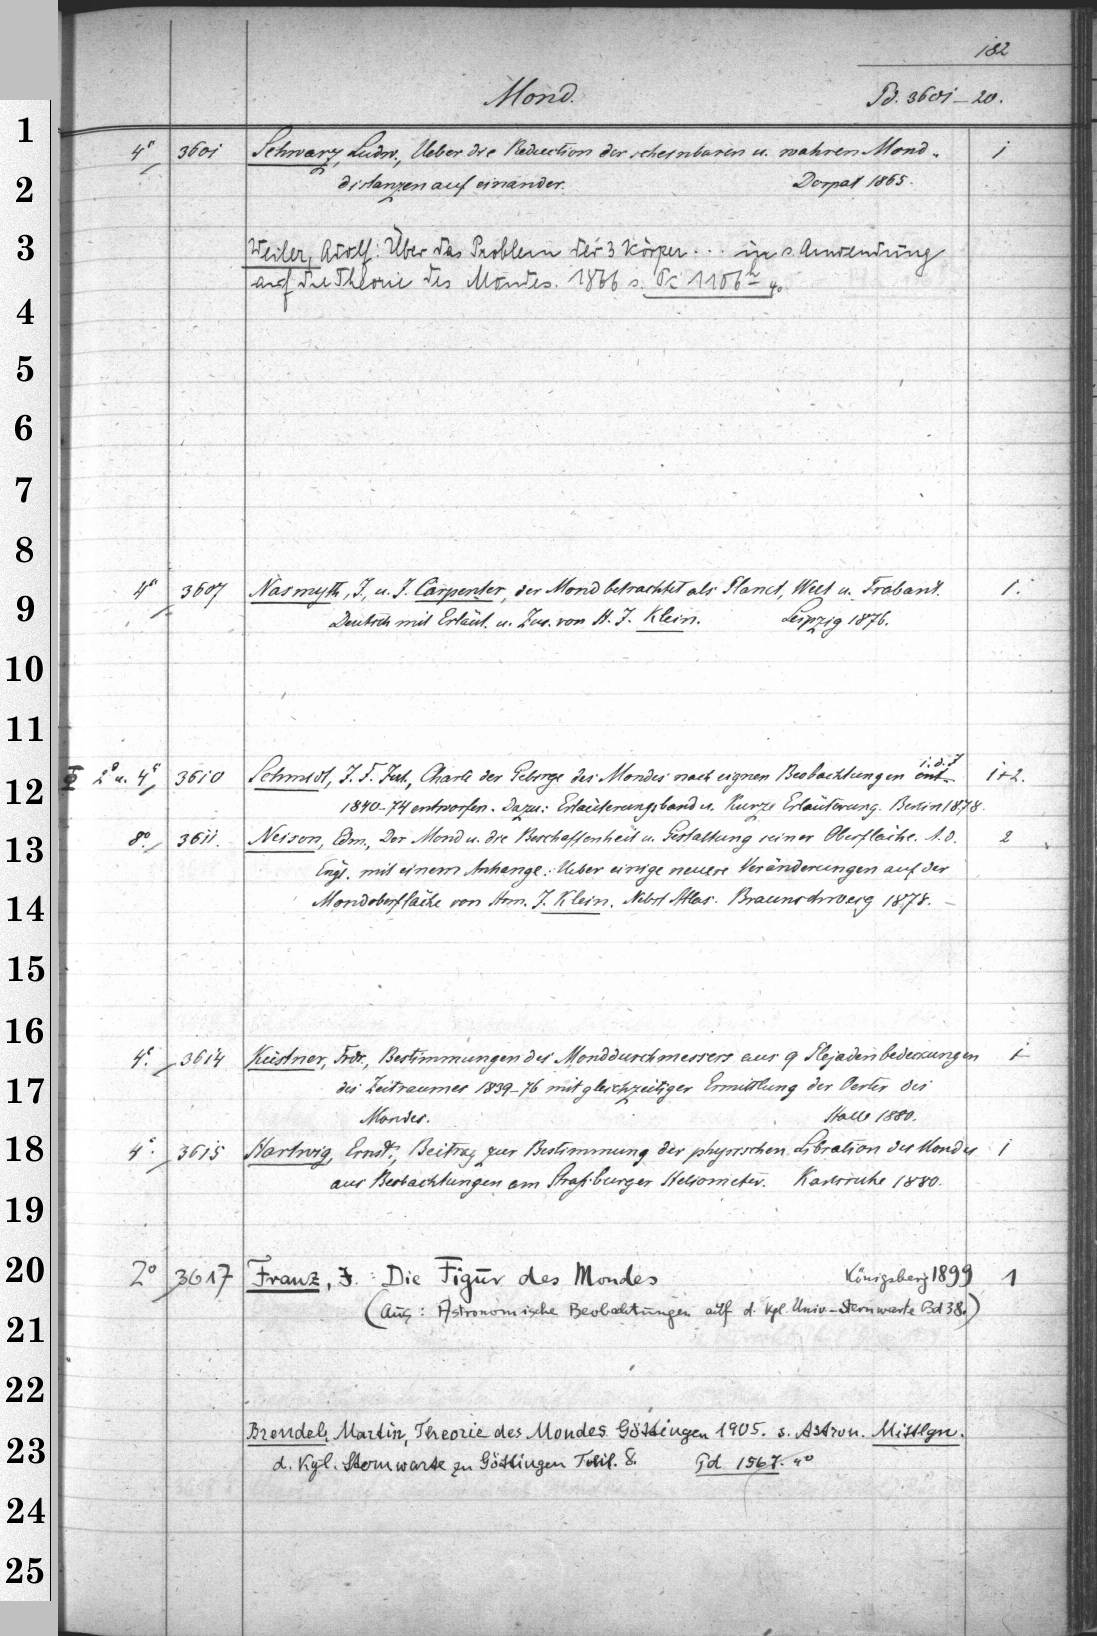 182
Mond. Pd. 3601-20.
1
4° 3601 Schwarz, Ludw., Ueber die Reduction der scheinbaren u. wahren Mond- 1
2
distanzen auf einander. Dorpat 1865.
3
Weiler, Adolf: Über das Problem der 3 Körper ... in s. Anwendung
auf die Theorie des Mondes. 1866 s. 1106 4°
4
5
6
7
8
4° 3607 Nasmyth, J. u. J. Carpenter, der Mond betrachtet als Planet, Welt u. Trabant. 1.
9
Deutsch mit Erläut. u. Zus. von H. J. Klein. Leipzig 1876.
10
11
i. d. J
2° u. 4° 3610 Schmidt, J. F. Jul., Charte der Gebirge des Mondes nach eignen Beobachtungen ent- 1+2.
12
1840-74 entworfen. Dazu: Erläuterungsband u. Kurze Erläuterung. Berlin 1878.
8° 3611. Neison, Edm., Der Mond u. die Beschaffenheit u. Gestaltung seiner Oberfläche. A. d. 2
13
Engl. mit einem Anhange: Ueber einige neuere Veränderungen auf der
Mondoberfläche von Hm. J. Klein. Nebst Atlas. Braunschweig 1878.
14
15
16
4° 3614 Küstner, Frdr., Bestimmungen des Monddurchmessers aus 9 Plejadenbedeckungen 1
17
des Zeitraumes 1839-76 mit gleichzeitiger Ermittlung der Oerter des
Mondes. Halle 1880.
18
4° 3615 Hartwig, Ernst, Beitrag zur Bestimmung der physischen Libration des Mondes 1
aus Beobachtungen am Straßburger Heliometer. Karlsruhe 1880.
19
20
2° 3617 Franz, J.: Die Figur des Mondes Königsberg 1899 1
(Aus: Astronomische Beobachtungen auf d. kgl. Univ-Sternwarte Bd 38.)
21
22
Brendel, Martin, Theorie des Mondes. Göttingen 1905. s. Astron. Mittlgn.
23
d. Kgl. Sternwarte zu Göttingen Teil. 8. Pd 1567. 4°
24
25